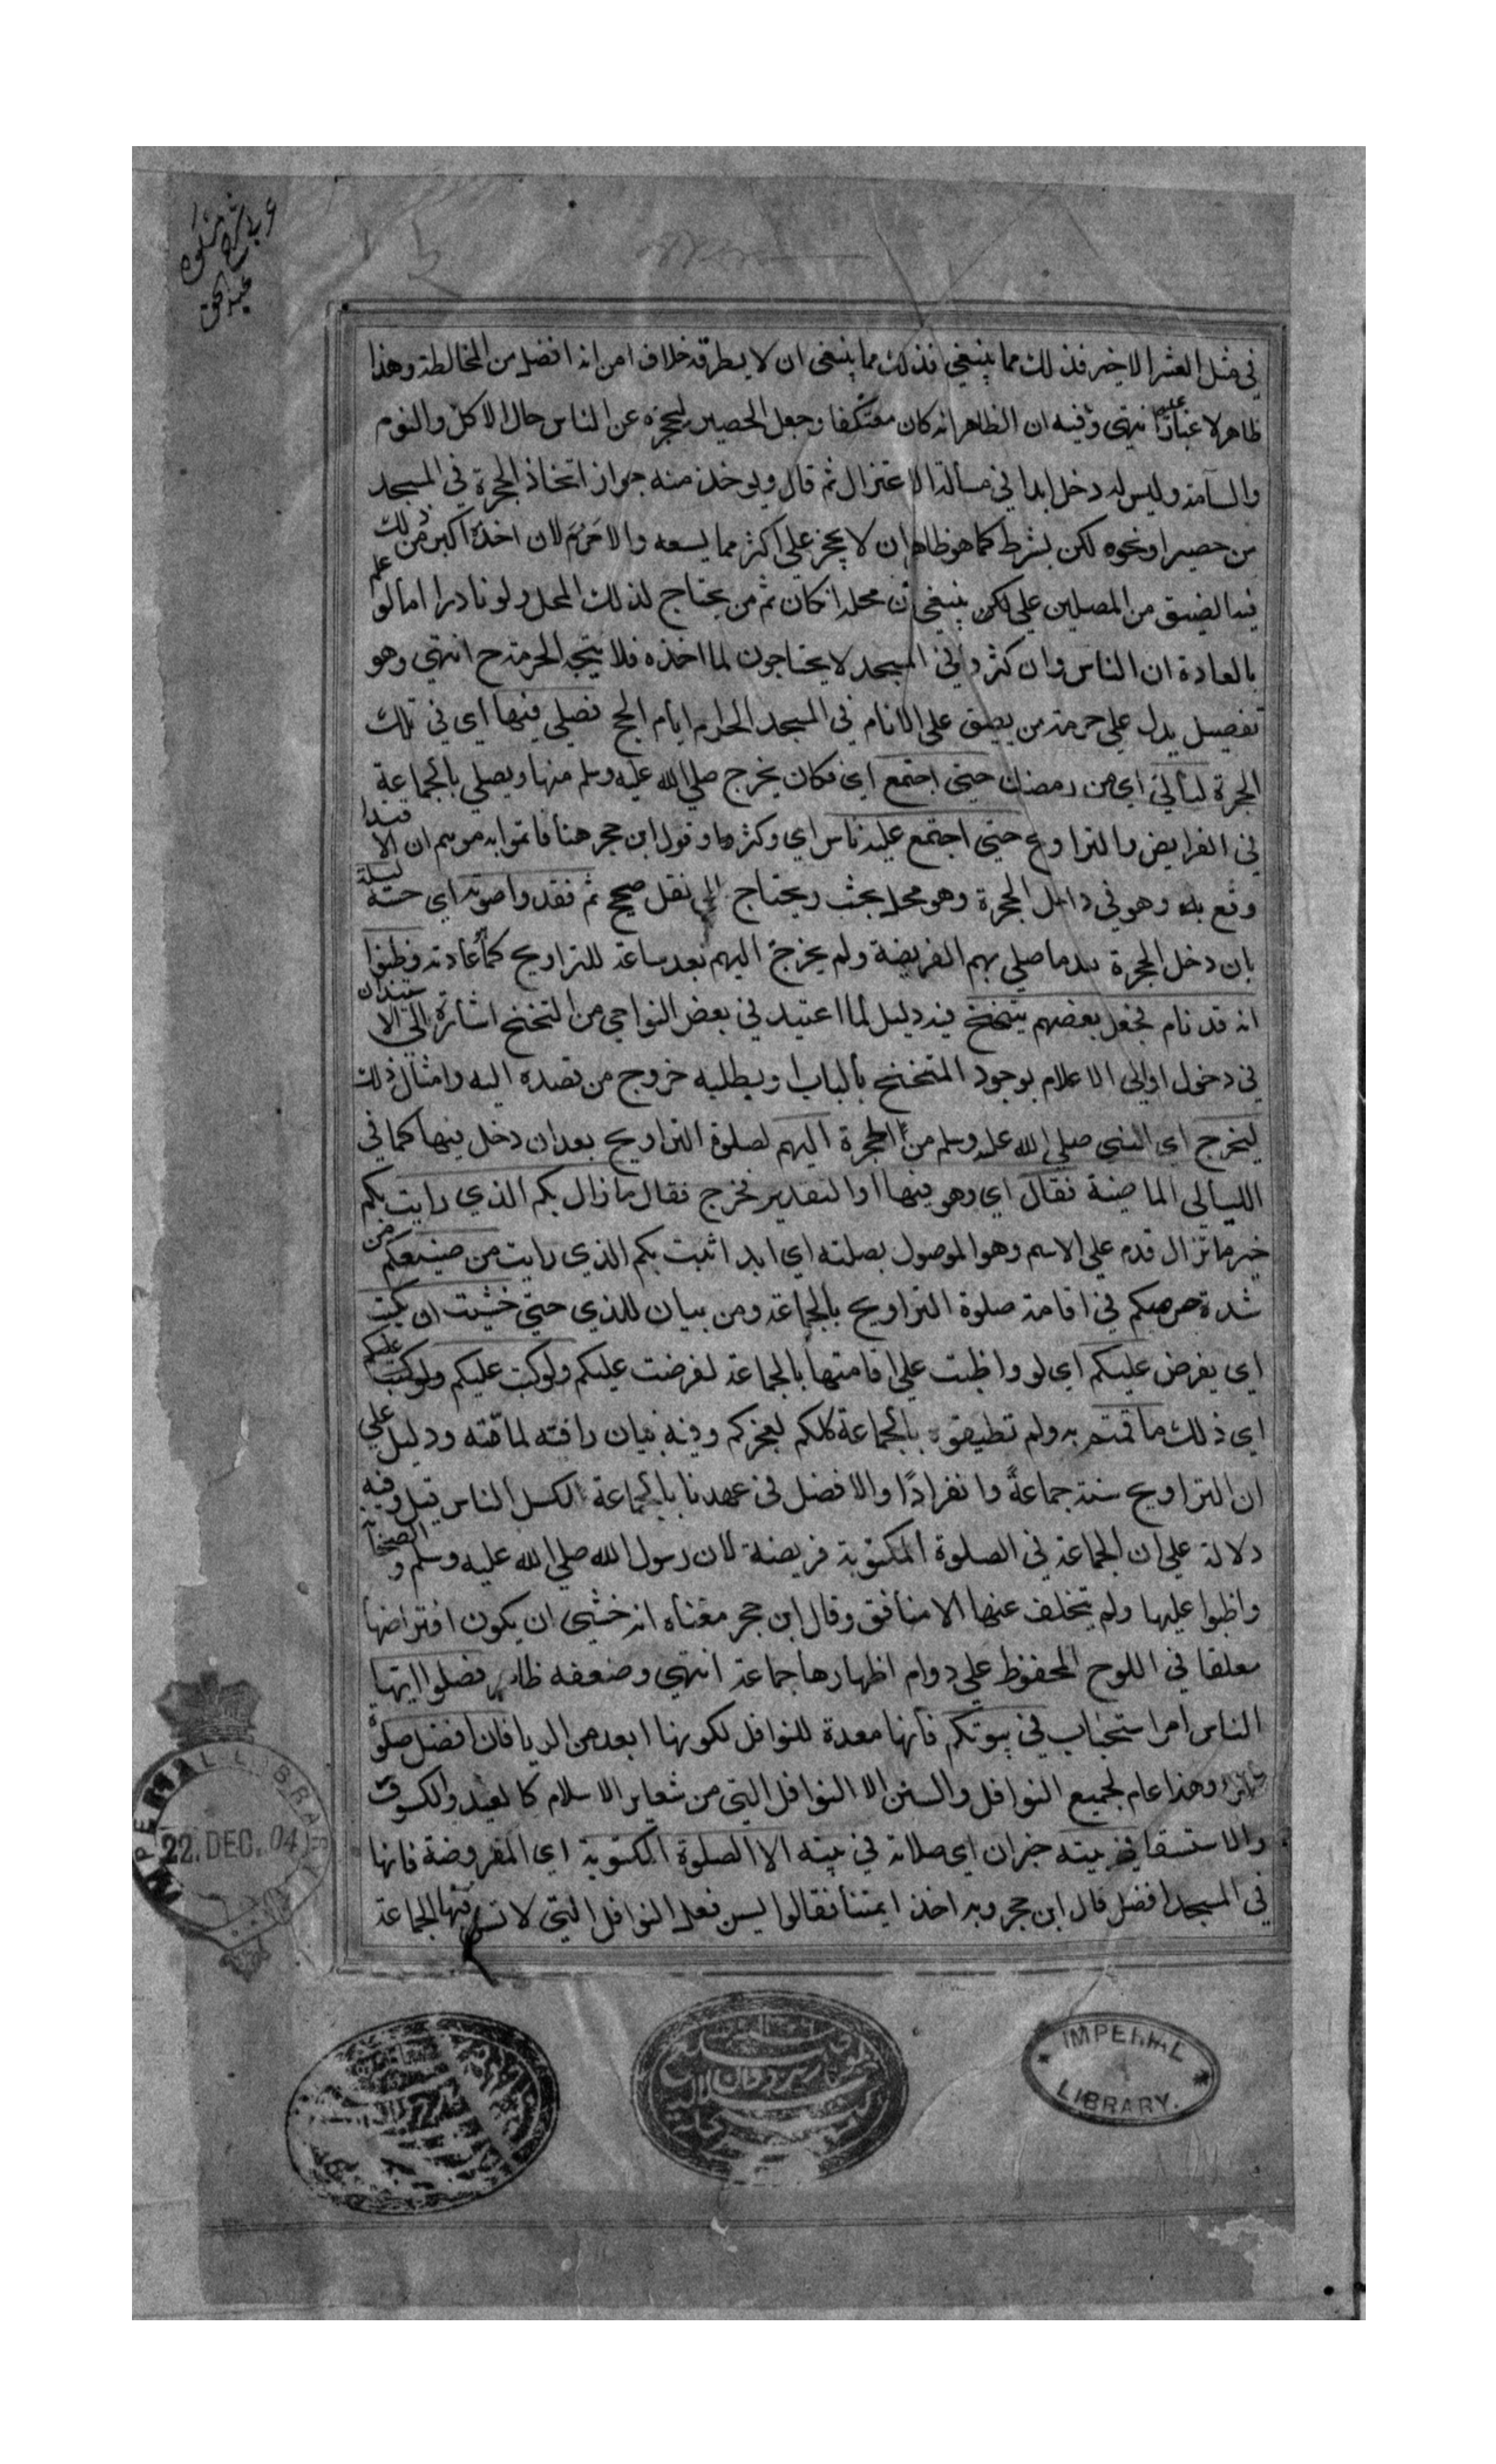 عربي شرح مشكوة
عبد الحق
في مثل العشر الاخير فذلك مما ينبغي فذلك مما ينبغي ان لا يطرقه خلاف امن انه افضل من المخالطة وهذا
ظاهر لا غبار عليه انتهي وفيه ان الظاهر انه كان معتكفا وجعل الحصير ليحجزه عن الناس حال الاكل والنوم
والسآمة وليس له دخل ابدا في مسالة الاعتزال ثم قال ويوخذ منه جواز اتخاذ الحجرة في المسجد
من حصير او نحوه لكن بشرط كما هو ظاهر ان لا يحجز علي اكثر مما يسعه والا حرم لان اخذه اكبر من ذلك
فيه الضيق من المصلين علي لكن ينبغي ان محله ان كان ثم من يحتاج لذلك المحل ولو نادرا اما لو علم
بالعادة ان الناس وان كثروا في المسجد لا يحتاجون لما اخذه فلا يتجه الحرمة ح انتهي وهو
تفصيل يدل علي حرمة من يضيق علي الانام في المسجد الحرام ايام الحج فصلي فيها اي في تلك
الحجرة ليالي اي من رمضان حتي اجتمع اي فكان يخرج صلي الله عليه وسلم منها ويصلي بالجماعة
في الفرايض والتراويح حتي اجتمع عليه ناس اي وكثروا وقول ابن حجر هنا فاتموا به موهم ان الاقتدا
وقع به وهو في داخل الحجرة وهو محل بحث ويحتاج الي نقل صحيح ثم فقدوا صوته اي حسه ليلة
بان دخل الحجرة بعد ما صلي بهم الفريضة ولم يخرج اليهم بعد ساعة للتراويح كما عادته وظنوا
انه قد نام فجعل بعضهم يتنحنح فيه دليل لما اعتيد في بعض النواحي من التنحنح اشارة الي الاستيذان
في دخول او الي الاعلام بوجود المتنحنح بالباب او بطلبه خروج من قصده اليه وامثال ذلك
ليخرج اي النبي صلي الله عليه وسلم من الحجرة اليهم لصلوة التراويح بعد ان دخل فيها كما في
الليالي الماضية فقال اي وهو فيها او التقدير فخرج فقال ما زال بكم الذي رايت بكم
خبر ما تزال قدم علي الاسم وهو الموصول بصلته اي ابدا ثبت بكم الذي رايت من صنيعكم من
شدة حرصكم في اقامة صلوة التراويح بالجماعة ومن بيان للذي حتي خشيت ان يكتب
اي يفرض عليكم اي لو واظبت علي اقامتها بالجماعة لفرضت عليكم ولو كتب عليكم ولو كتب عليكم
اي ذلك ما قمتم به ولم تطيقوه بالجماعة كلكم لعجزكم وفيه بيان رافته لامته ودليل علي
ان التراويح سنة جماعةً وانفرادًا والافضل في عهدنا بالجماعة لكسل الناس قيل وفيه
دلالة علي ان الجماعة في الصلوة المكتوبة فريضة لان رسول الله صلي الله عليه وسلم والصحابة
واظبوا عليها ولم يتخلف عنها الا منافق وقال ابن حجر معناه انه خشي ان يكون افتراضها
معلقا في اللوح المحفوظ علي دوام اظهارها جماعة انتهي وضعفه ظاهر فصلوا ايها
الناس امر استحباب في بيوتكم فانها معدة للنوافل لكونها ابعد من الريا فان افضل صلوة
المرء وهذا عام لجميع النوافل والسنن الا النوافل التي من شعاير الاسلام كالعيد والكسوف
والاستسقا في بيته خبر ان اي صلاته في بيته الا الصلوة المكتوبة اي المفروضة فانها
في المسجد افضل قال ابن حجر وبه اخذ ايمتنا فقالوا ليس فعل النوافل التي لا تسن فيها الجماعة
IMPERIAL LIBRARY
22. DEC. 04
IMPERIAL
LIBRARY.